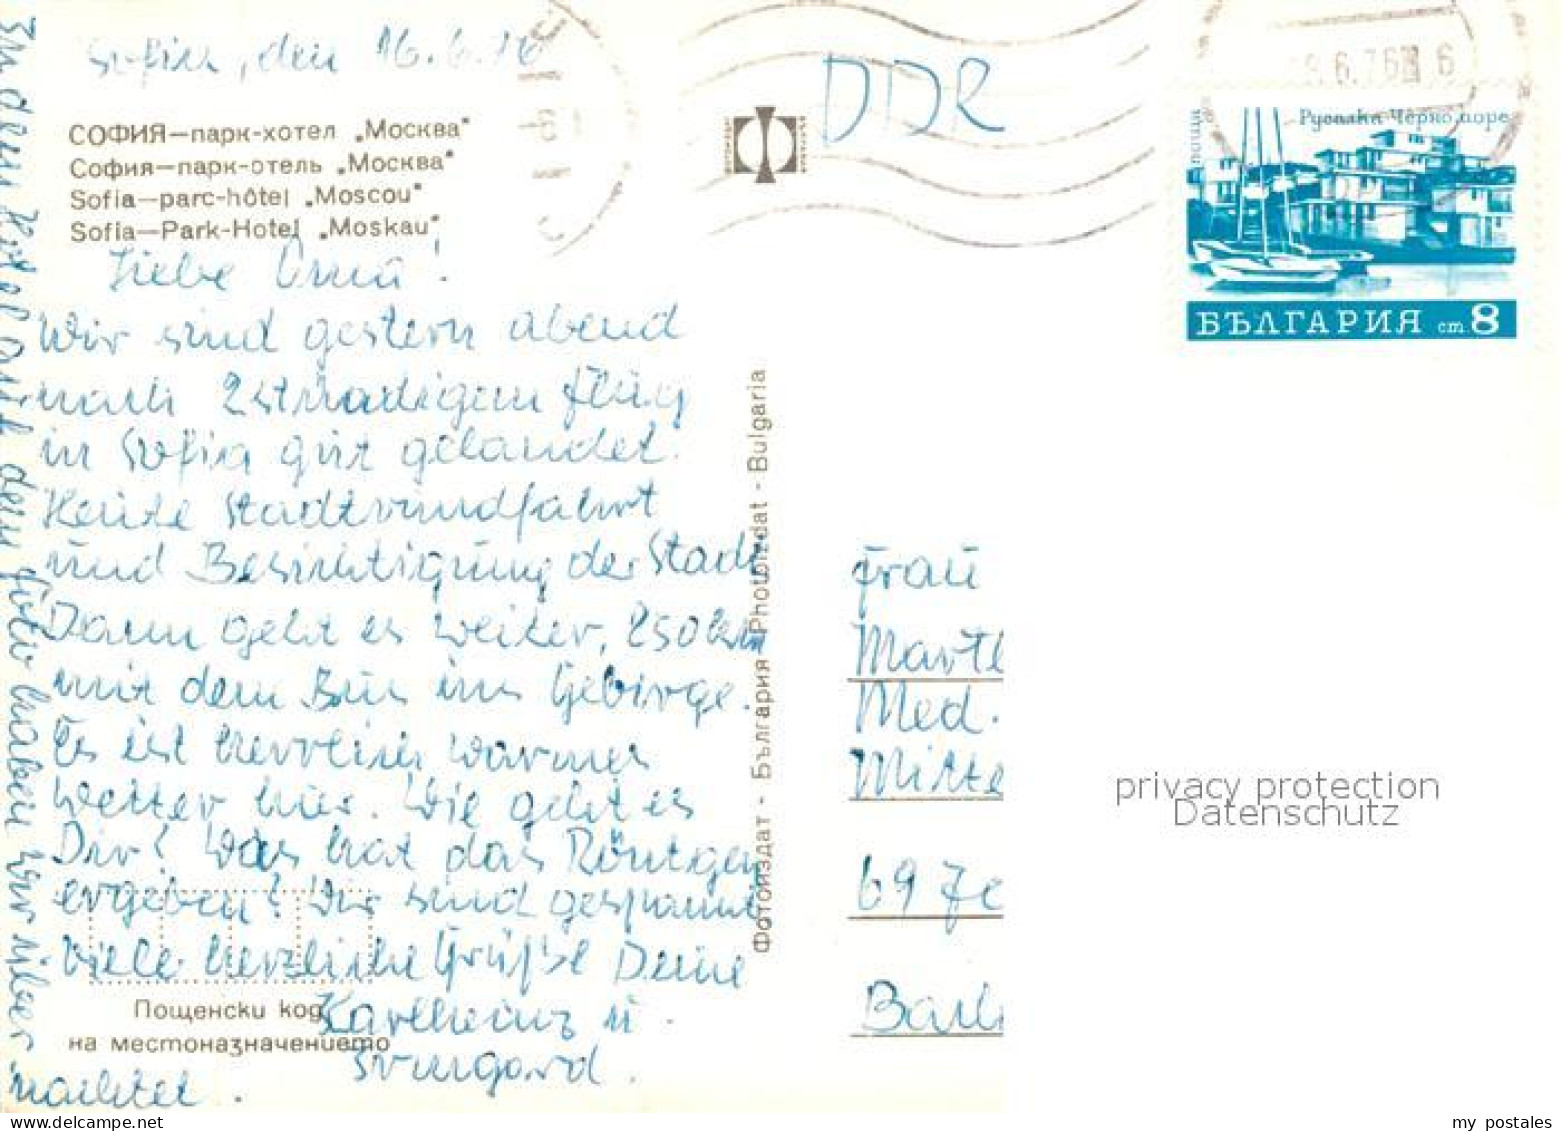 Sofia, den 16.6.76
DDR
6.76
6
СОФИЯ—парк-хотел „Москва"
София—парк-отель „Москва"
Sofia—parc-hôtel „Moscou"
Sofia—Park-Hotel „Moskau"
поща
Русалка Черно море
БЪЛГАРИЯ ст. 8
Liebe Oma!
Wir sind gestern abend
nach 2stündigem Flug
in Sofia gut gelandet.
Heute Stadtrundfahrt
und Besichtigung der Stadt
Dann geht es weiter, 250 km
mit dem Bus ins Gebirge.
Es ist herrlich warmes
Wetter hier. Wie geht es
Dir? Was hat das Röntgen
ergeben? Wir sind gespannt
Viele herzliche Grüße Deine
Karlheinz u.
Irmgard.
In dem Hotel auf dem Foto haben wir über
nachtet.
Пощенски код
на местоназначението
Фотоиздат - България Photoizdat - Bulgaria
Frau
Marth
Med.
Mitte
69 Je
Bach
privacy protection
Datenschutz
my postales